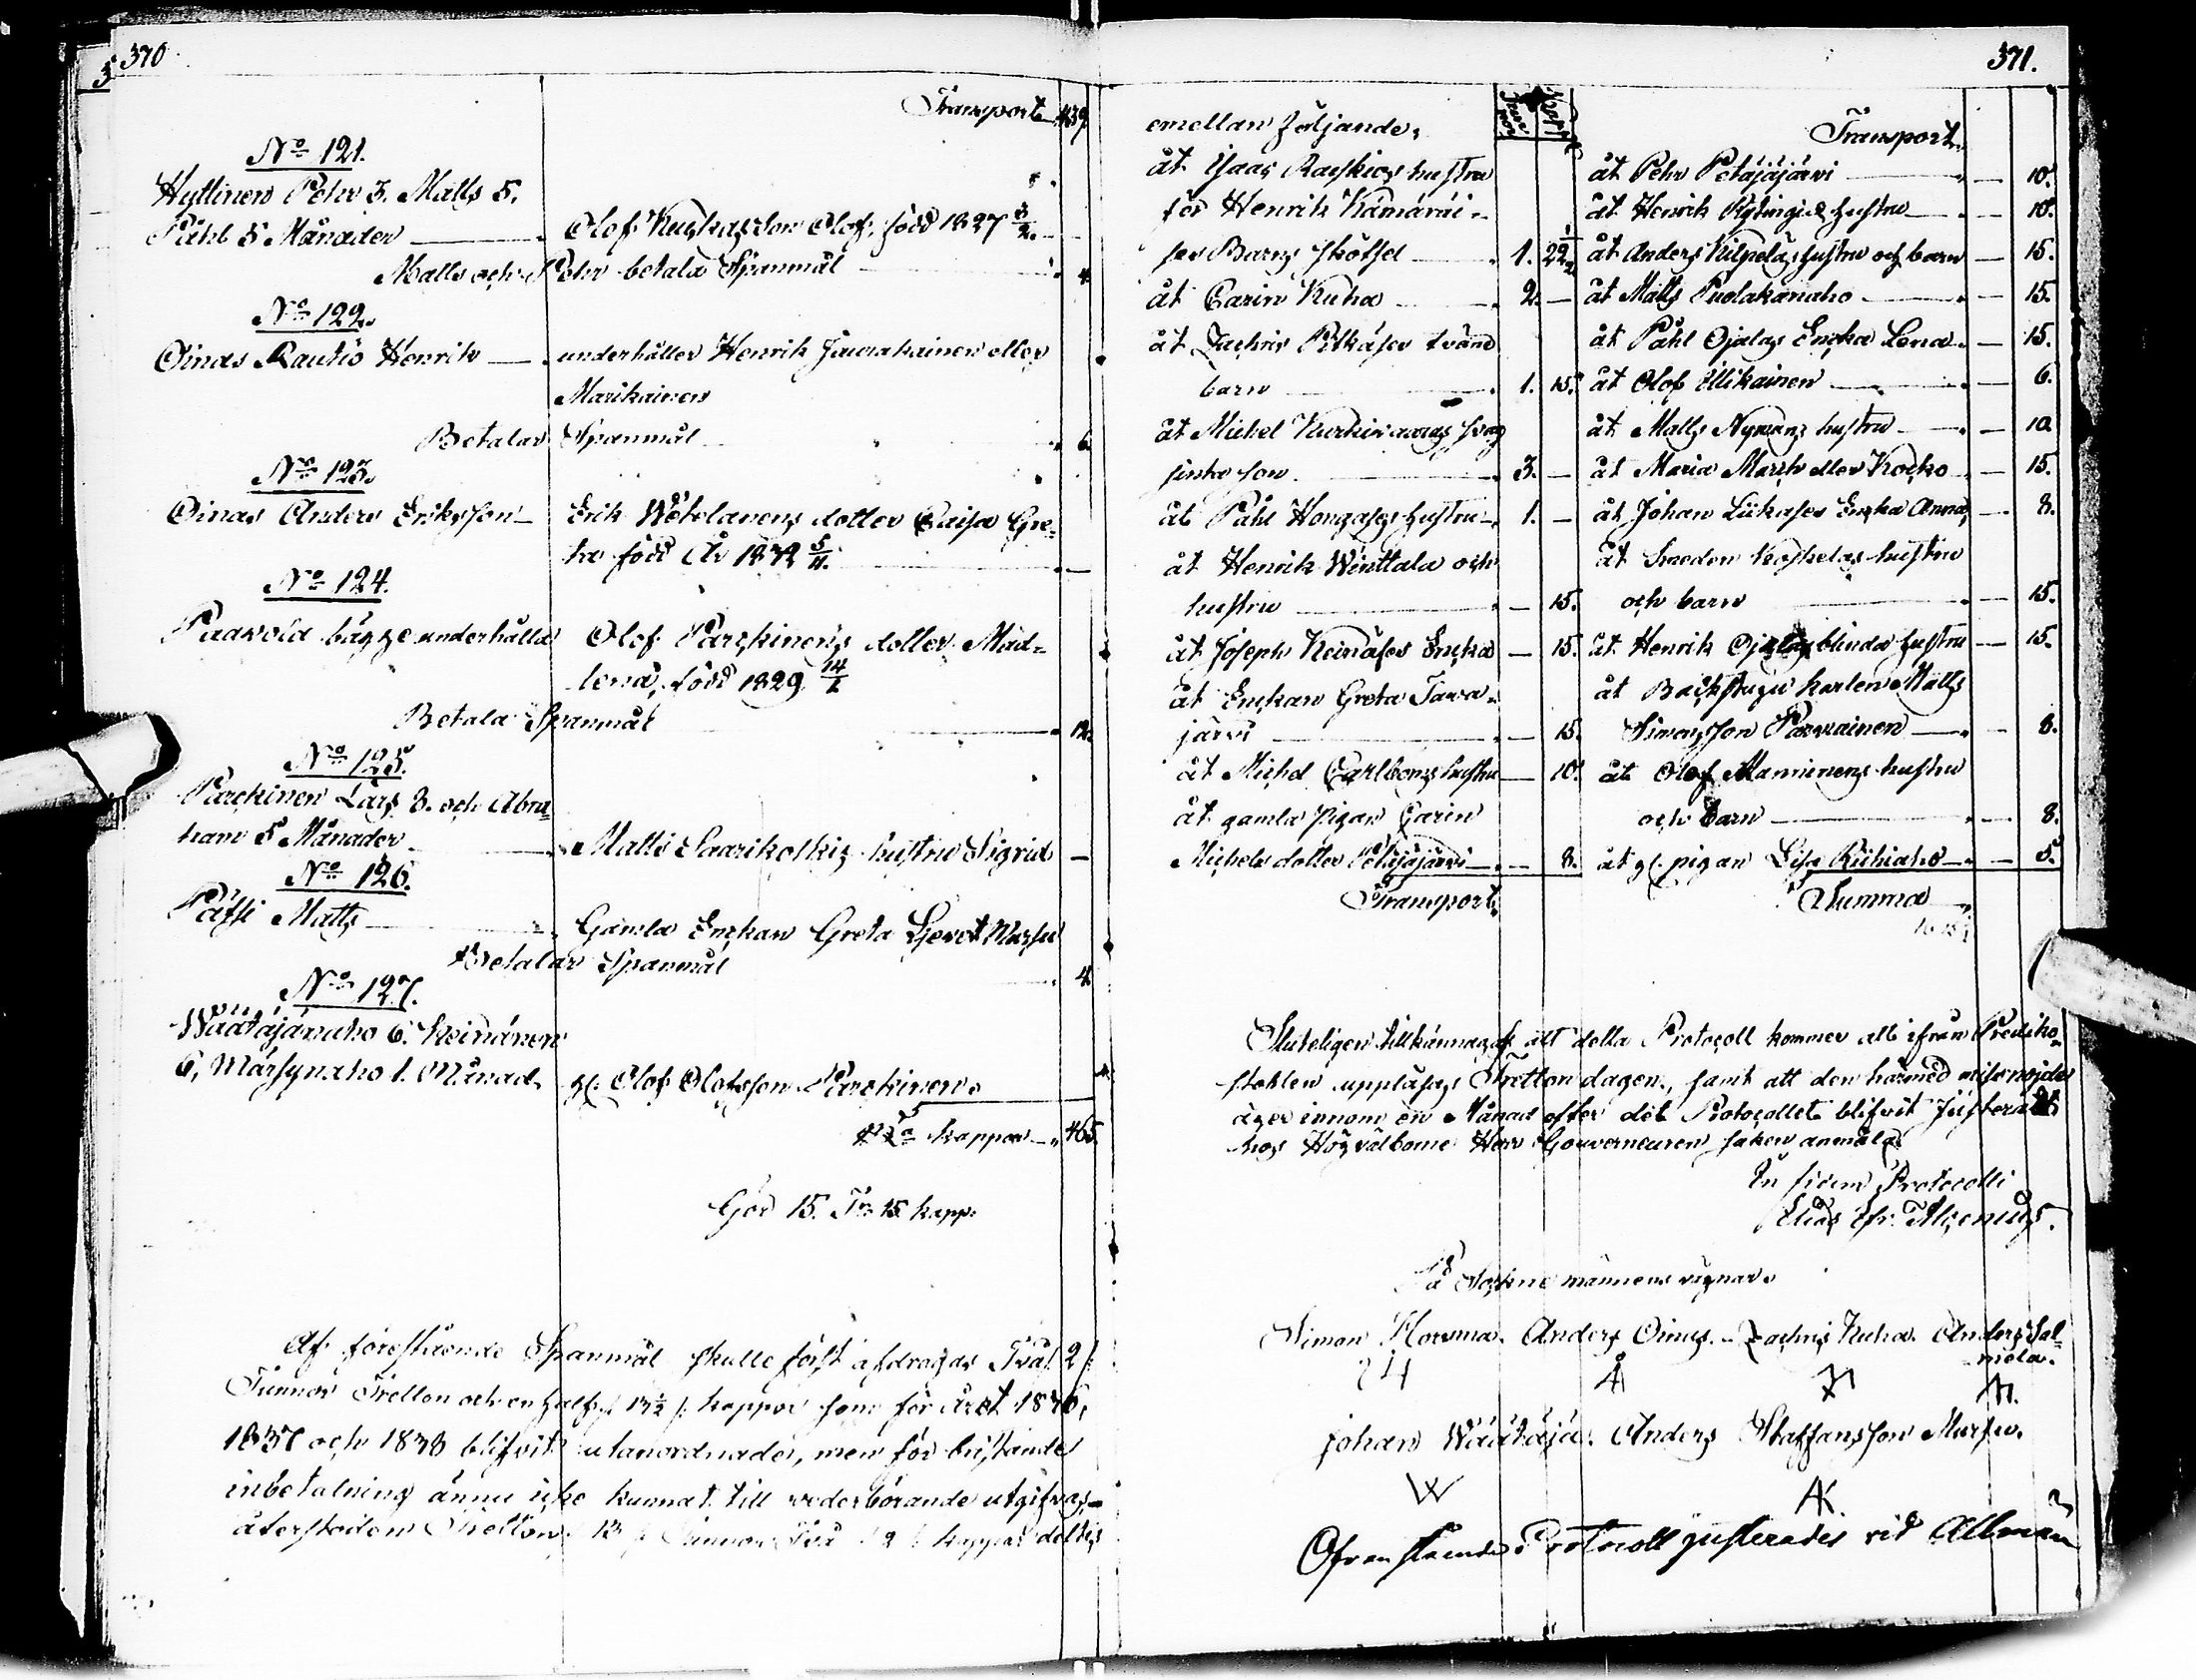 370.
Transport 439.
No 121.
Hyttinen Pehr 3. Matts 5.
Påhl 5 Månader Olof Kuskas Son Olof, född 1827 3/2.
Matts och Pehr betala Spanmål 4.
No 122.
Oinas Rautio Henrik underhåller Henrik Juurakainen eller
Marikainen
Betalar Spanmål 6.
No 123.
Oinas Anders Eriksson Erik Wetelanens dotter Caisa Gre-
ta född År 1832 5/11.
No 124.
Paavola bägge underhålla Olof Parckinens dotter Mad-
lena, född 1829 14/1
Betala Spanmål 12.
No 125.
Parckinen Lars 3. och Abra-
ham 5 Månader Matts Saarikoskis hustru Sigrid
No 126.
Pätsi Matts Gamla Enkan Greta Mursu
Betalar Spanmål 4.
No 127.
Wäätäjänaho 6. Keinänen
6, Märsynaho 1. Månad gl. Olof Olofsson Parckinen.
Sa kappar 465.
Gör 15. Tr 15 kapp.
Af förestående Spanmål skulle först afdragas Två /: 2 /:
Tunnor Tretton och en half /: 13 1/2 /: kappor som för året 1836,
1837 och 1838 blifvit utanordnade, men för bristande
inbetalning ännu icke kunnat till vederbörande utgifvas
återstoden Tretton /: 13 /: Tunnor Två /: 2 /: kappar deltes
371.
emellan följande,
åt Isaac Raiskios hustru
för Henrik Kämäräi-
ses Barns skötsel 1. 22 1/2
åt Carin Kuha 2. —
åt Zachris Pitkäses tvänne
barn 1. 15.
åt Michel Kurkiwaaras svag
sinta son 3. —
åt Påhl Hongases hustru 1. —
åt Henrik Winttala och
hustru — 15.
åt Joseph Keinäses Enka — 15.
åt Enkan Greta Tawa-
järvi — 15.
åt Michel Carlboms hustru — 10.
åt gamla pigan Carin
Michels dotter Petäjäjärvi — 8.
Transport
Transport
åt Pehr Petäjäjärvi — 10.
åt Henrik Kytingis hustru — 10.
åt Anders Kilpeläs hustru och barn — 15.
åt Matts Puolakanaho — 15.
åt Påhl Ojalas Enka Lena — 15.
åt Olof Illikainen — 6.
åt Matts Nymans hustru — 10.
åt Maria Marth eller Kocko — 15.
åt Johan Liikases Enka Anna — 8.
åt Koskelas hustru
och barn — 15.
åt Henrik Ojalas blinda hustru — 15.
åt Backstugu karlen Matts
Simonsson Parviainen — 8.
åt Olof Manninens hustru
och Barn — 8.
åt gl. pigan Lisa Riihiaho — 5.
Summa
Sluteligen tillkännagafs att detta Protocoll kommer att ifrån Prediko-
stohlen uppläsas Trettondagen, samt att den härmed missnöjde
äger innom en Månad efter det Protocollet blifvit Justerat
hos Högvälborne Herr Gouverneuren saken anmäla.
In fidem Protocolli
Elias Alcenius.
På Sockne männens vägnar.
Simon Hourma. Anders Oinas. Zachris Kuha. Anders Sal-
mela.
Johan Wäätäjä. Anders Staffansson Mursu.
W AK.
Ofvanstående Protocoll justerades vid Allmän